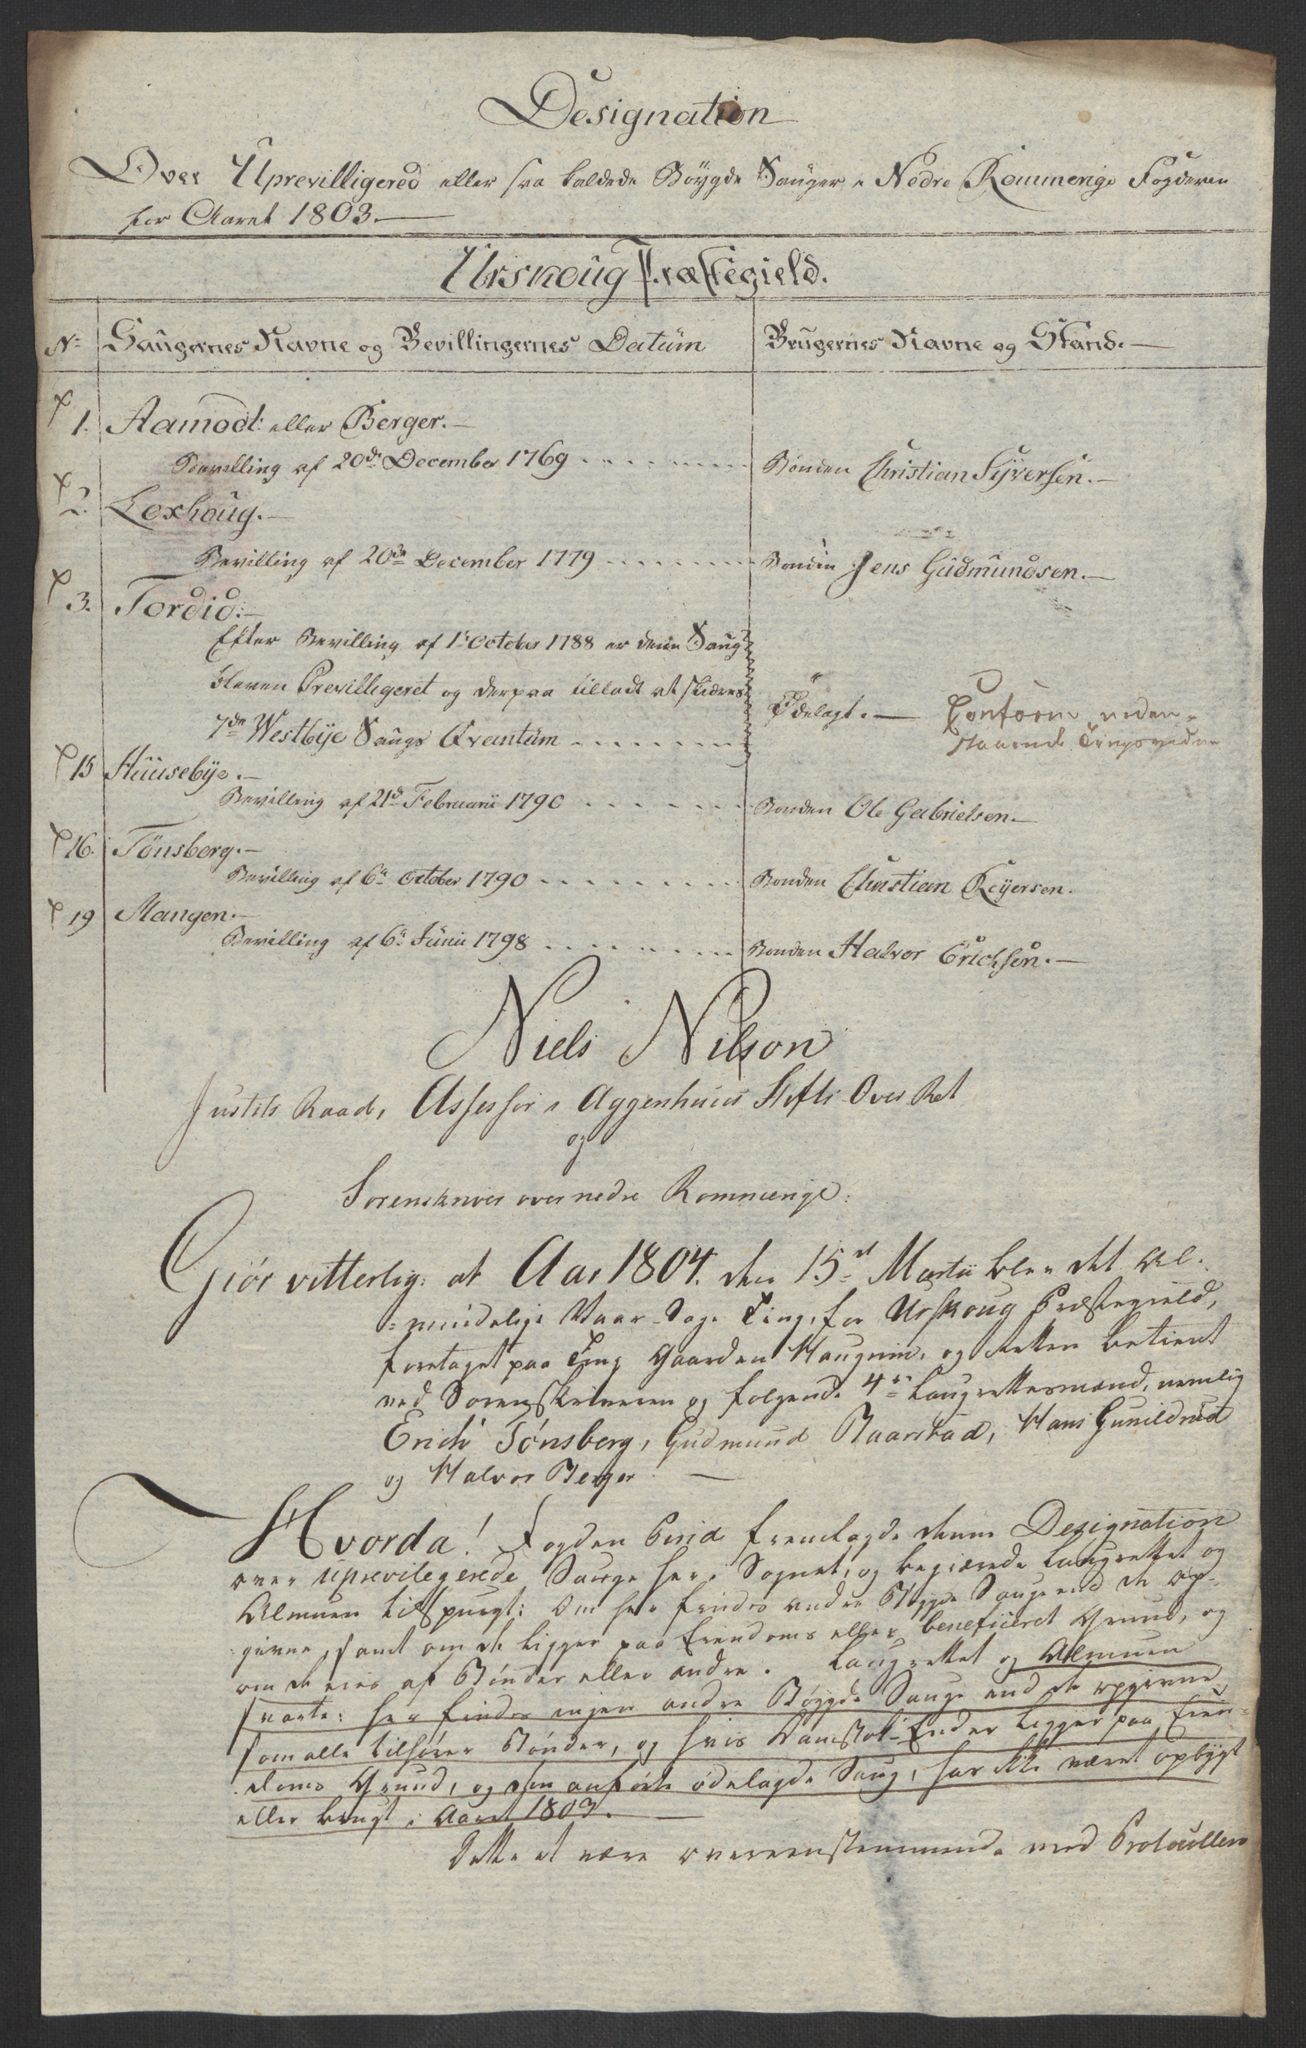 Designation
Over Uprevilligered eller saa kaldede Bøygde Sauger i Nedre Rommerige Fogderie
for Aaret 1803.
Urskoug Præstegield.
No Saugernes Navne og Bevillingernes Datum Brugernes Navne og Stand.
1. Aamodt eller Berger.
Bevilling af 20de December 1769 Bonden Christian Syversen.
2. Lexhoug.
Bevilling af 20de December 1779 Bonden Jens Gudmundsen.
3. Tordid:
Efter Bevilling af 1te October 1788 er denne Saug
bleven Previlligeret og derpaa tilladt at skiæres
Ødelagt. Conform neden-
7de Westbye Saugs Qvantum staaende Tingsvidne
15 Huusebye.
Bevilling af 21de Februarii 1790 Bonden Ole Gabrielsen.
16. Tønsberg.
Bevilling af 6te October 1790 Bonden Christian Reyersen.
19 Mangen.
Bevilling af 6te Junii 1798 Bonden Halvor Erichsen.
Niels Nilson
Justits Raad, Assessor i Aggershuus Stifts Over Ret
og
Sorenskriver over nedre Rommerige:
Giør vitterlig: at Aar 1804. den 15de Martii blev det Al-
mindelige Vaar-Sage Ting, for Urskoug Præstegield,
foretaget paa Ting Gaarden Haugnin, og Retten betient
ved Sorenskriveren og følgende 4re Laugrettesmænd, nemlig
Erich Tønsberg, Gudmund Raarstad, Hans Gunildrud
og Halvor Berger.
Hvorda! Fogden fremlagde denne Designation
over uprevilegerede Sauge her i Sognet, og begiærede Laugrettet og
Almuen tilspurgt: Om her findes andre Bøygde Sauge end de op-
givne, samt om de ligger paa Eiendoms eller beneficeret Grund, og
om de eies af Bønder eller andre. Laugrettet og Almuen
svarte: her findes ingen andre Bøygde Sauge end de opgivne
som alle tilhører Bønder, og hvis Damstok-Ender ligger paa Eien-
doms Grund, og den anførte ødelagde Saug, har ikke været opbygt
eller brugt i Aaret 1803.
Dette at være overeenstemmende med Protocullen